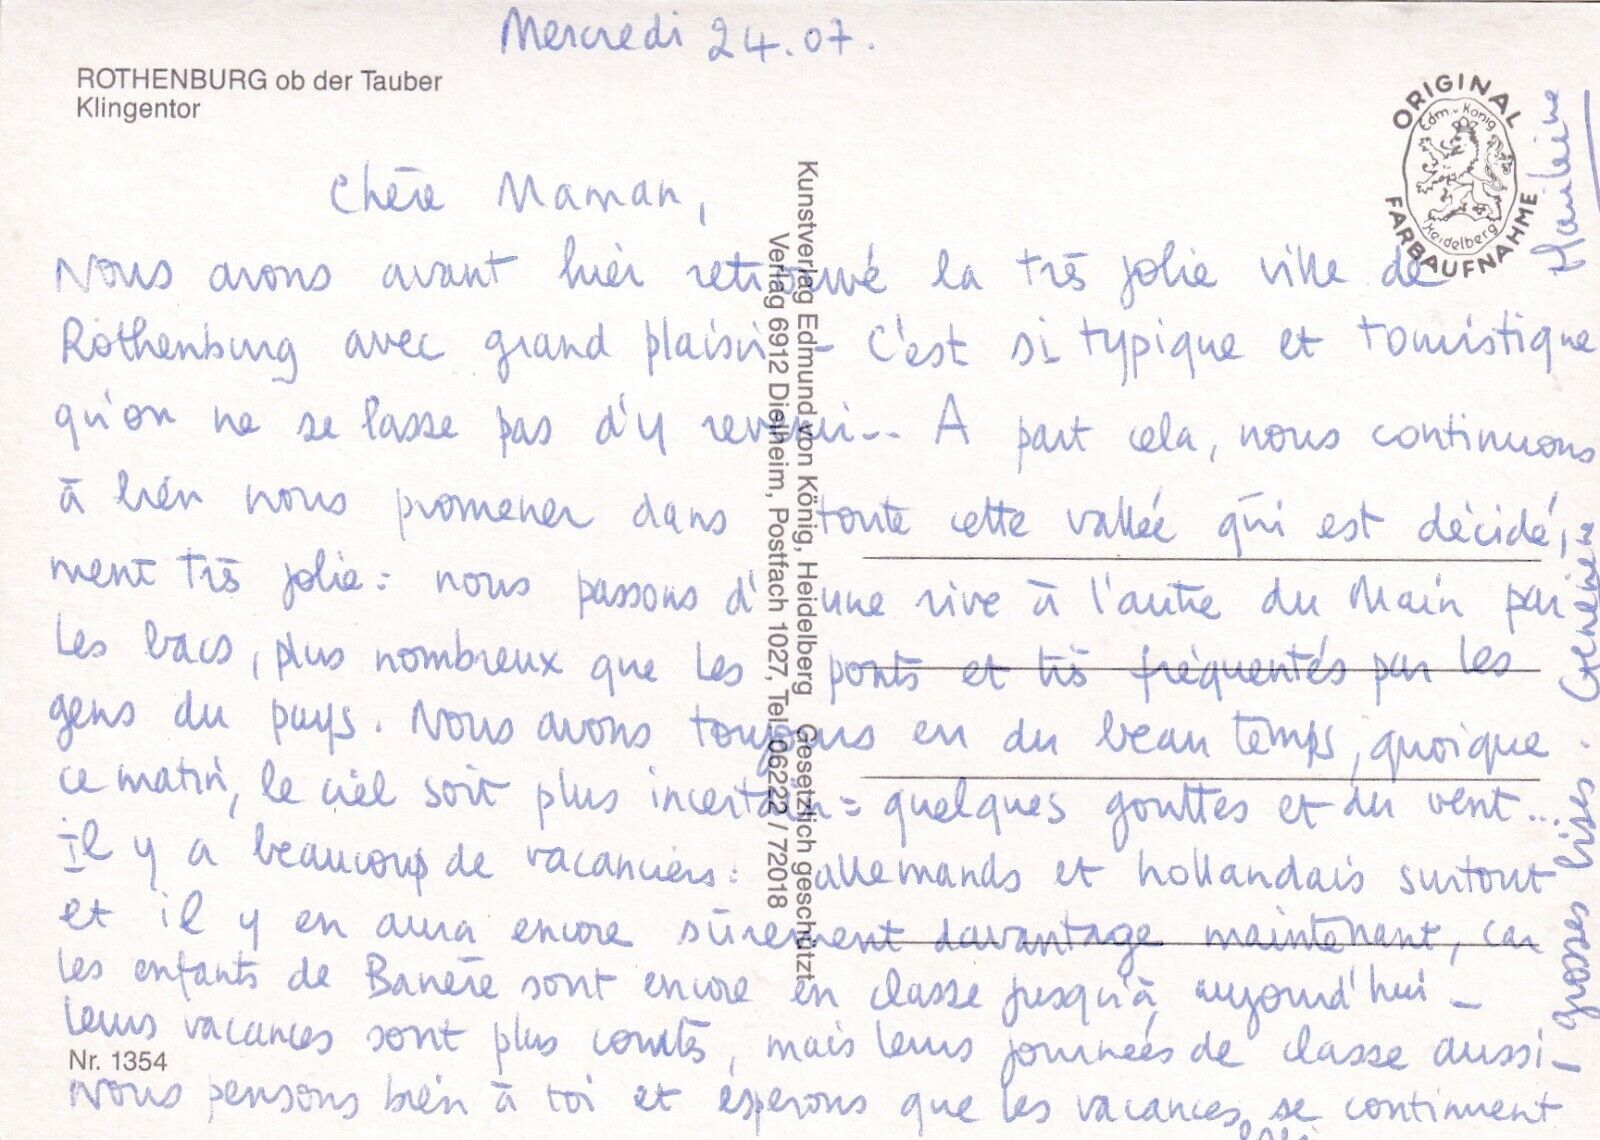 Mercredi 24.07.
ROTHENBURG ob der Tauber
Klingentor
ORIGINAL
Edm. v. König
Heidelberg
FARBAUFNAHME
Chère Maman,
Nous avons avant hier retrouvé la très jolie ville de
Rothenburg avec grand plaisir - C'est si typique et touristique
qu'on ne se lasse pas d'y revenir... A part cela, nous continuons
à bien nous promener dans toute cette vallée qui est décidé,
ment très jolie = nous passons d'une rive à l'autre du Main par
les bacs, plus nombreux que les ponts et très fréquentés par les
gens du pays. Nous avons toujours eu du beau temps, quoique
ce matin, le ciel soit plus incertain = quelques gouttes et du vent...
Il y a beaucoup de vacanciers : allemands et hollandais surtout
et il y en aura encore sûrement davantage maintenant, car
les enfants de Bavière sont encore en classe jusqu'à aujourd'hui -
leurs vacances sont plus courtes, mais leurs journées de classe aussi -
Nous pensons bien à toi et espérons que les vacances se continuent
grosses bises. Geneviève
Kunstverlag Edmund von König, Heidelberg Gesetzlich geschützt
Verlag 6912 Dielheim, Postfach 1027, Tel. 06222 / 72018
Nr. 1354